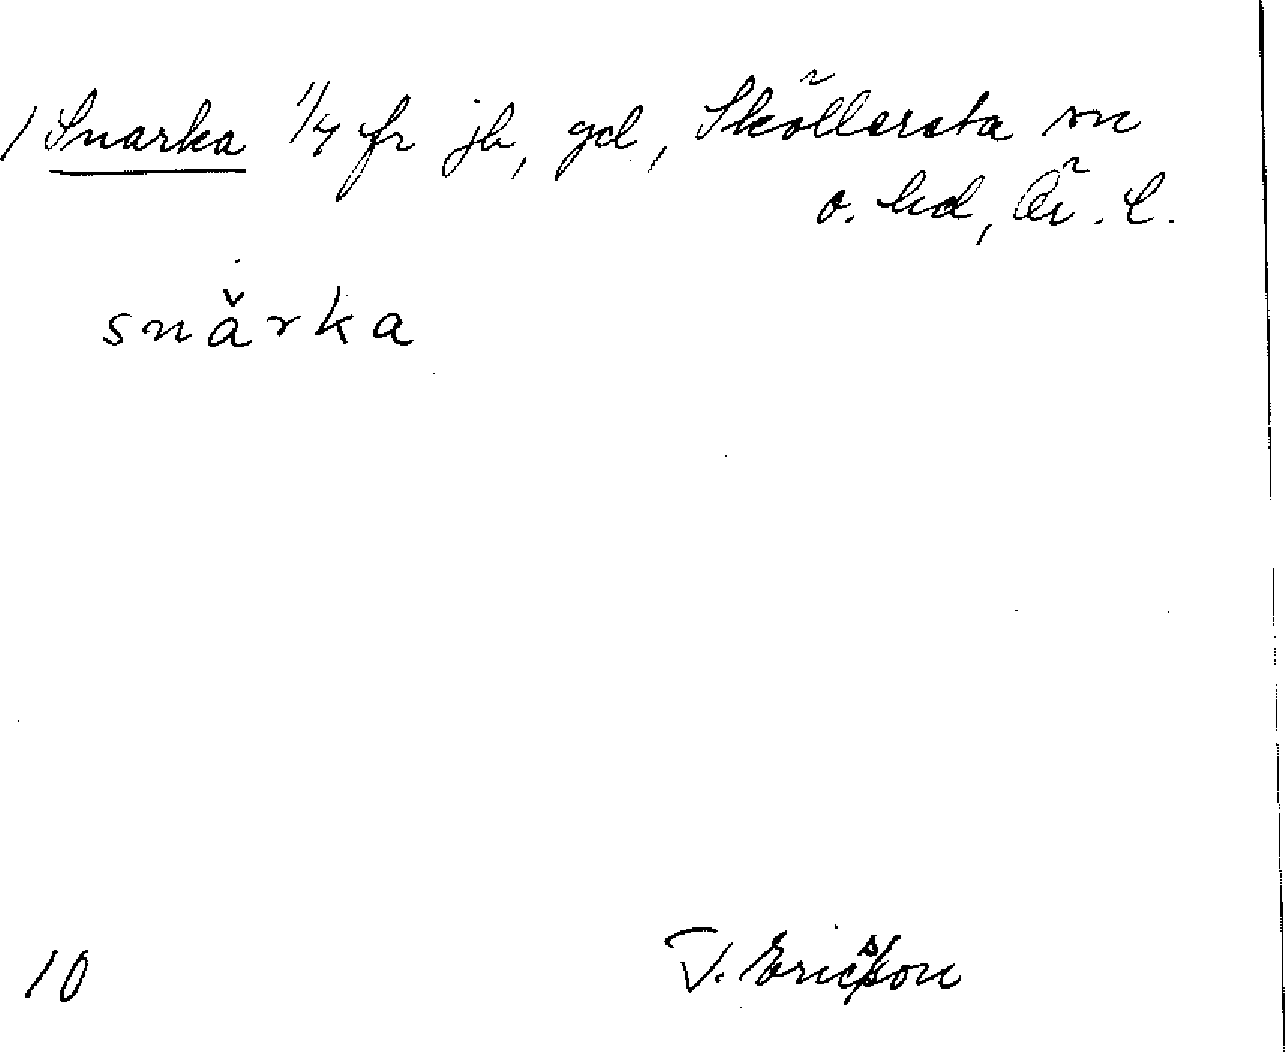 1 Snarka 1/4 fr jb, gd, Sköllersta sn
o. hd, Ör. l.
snǎrka
10 T. Ericsson